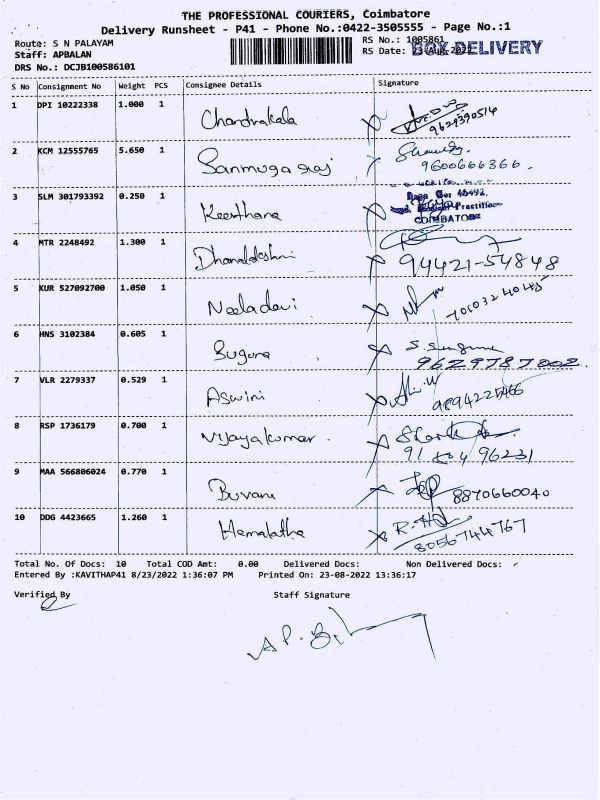 THE PROFESSIONAL COURIERS, Coimbatore
Delivery Runsheet - P41 - Phone No.:0422-3505555 - Page No.:1
Route: S N PALAYAM
RS No.: 1005861
Staff: APBALAN
RS Date: 23-Aug-2022
BOX DELIVERY
DRS No.: DCJB100586101
S No Consignment No Weight PCS Consignee Details Signature
1 DPI 10222338 1.000 1 Chandrakala 9629390514
2 KCM 12555765 5.650 1 Sanmuga raj 9600666366.
3 SLM 301793392 0.250 1 Keerthana
COIMBATORE
4 MTR 2248492 1.300 1 Dhanalakshmi 94421-54848
5 KUR 527092700 1.050 1 Neeladevi
6 HNS 3102384 0.605 1 Suguna S. Suguna
9629787002.
7 VLR 2279337 0.529 1 Aswini 9894225466
8 RSP 1736179 0.700 1 Vijayakumar
96231
9 MAA 566806024 0.770 1 Buvana 8870660040
10 DDG 4423665 1.260 1 Hemalatha
8056744767
Total No. Of Docs: 10 Total COD Amt: 0.00 Delivered Docs: Non Delivered Docs:
Entered By :KAVITHAP41 8/23/2022 1:36:07 PM Printed On: 23-08-2022 13:36:17
Verified By Staff Signature